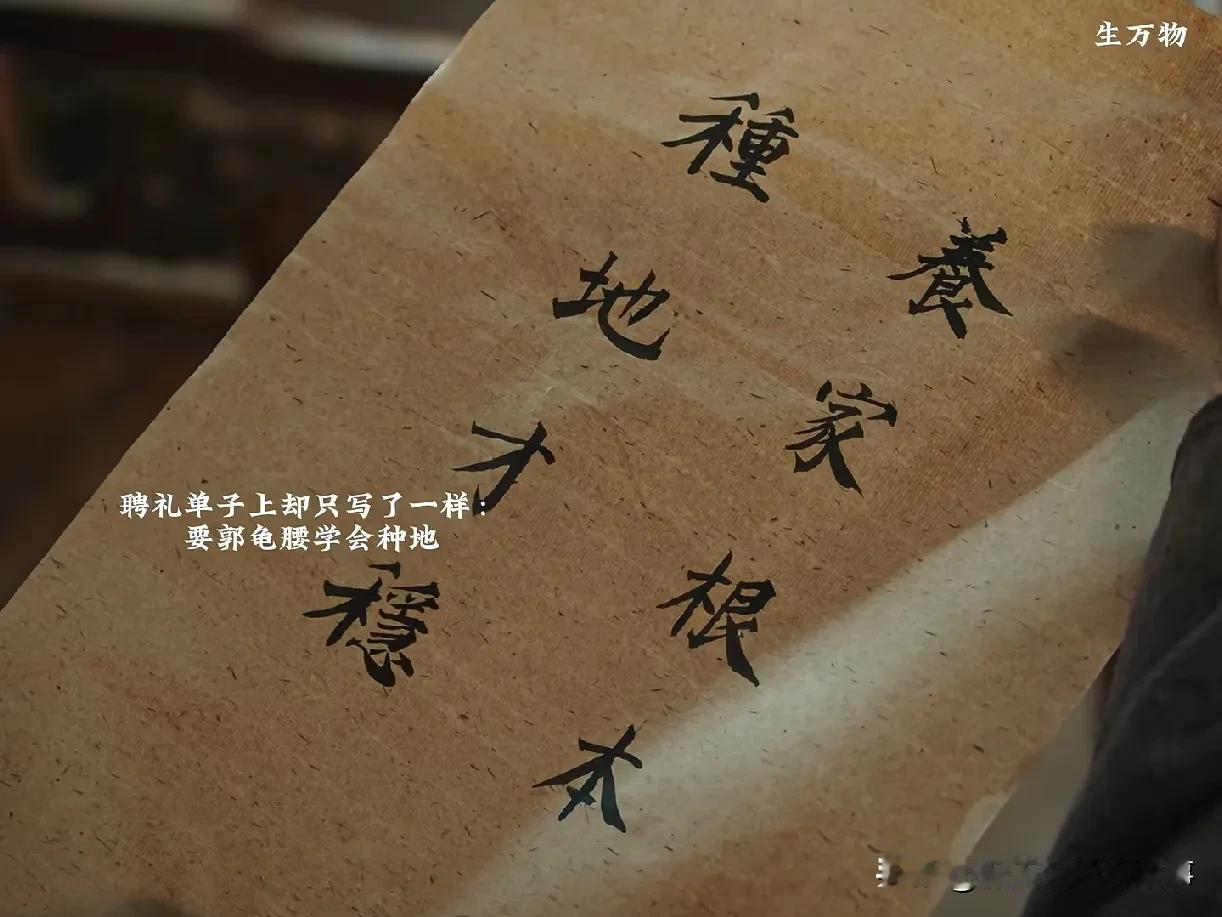 生万物
養家根本
種地才穩
聘礼单子上却只写了一样：
要郭龟腰学会种地